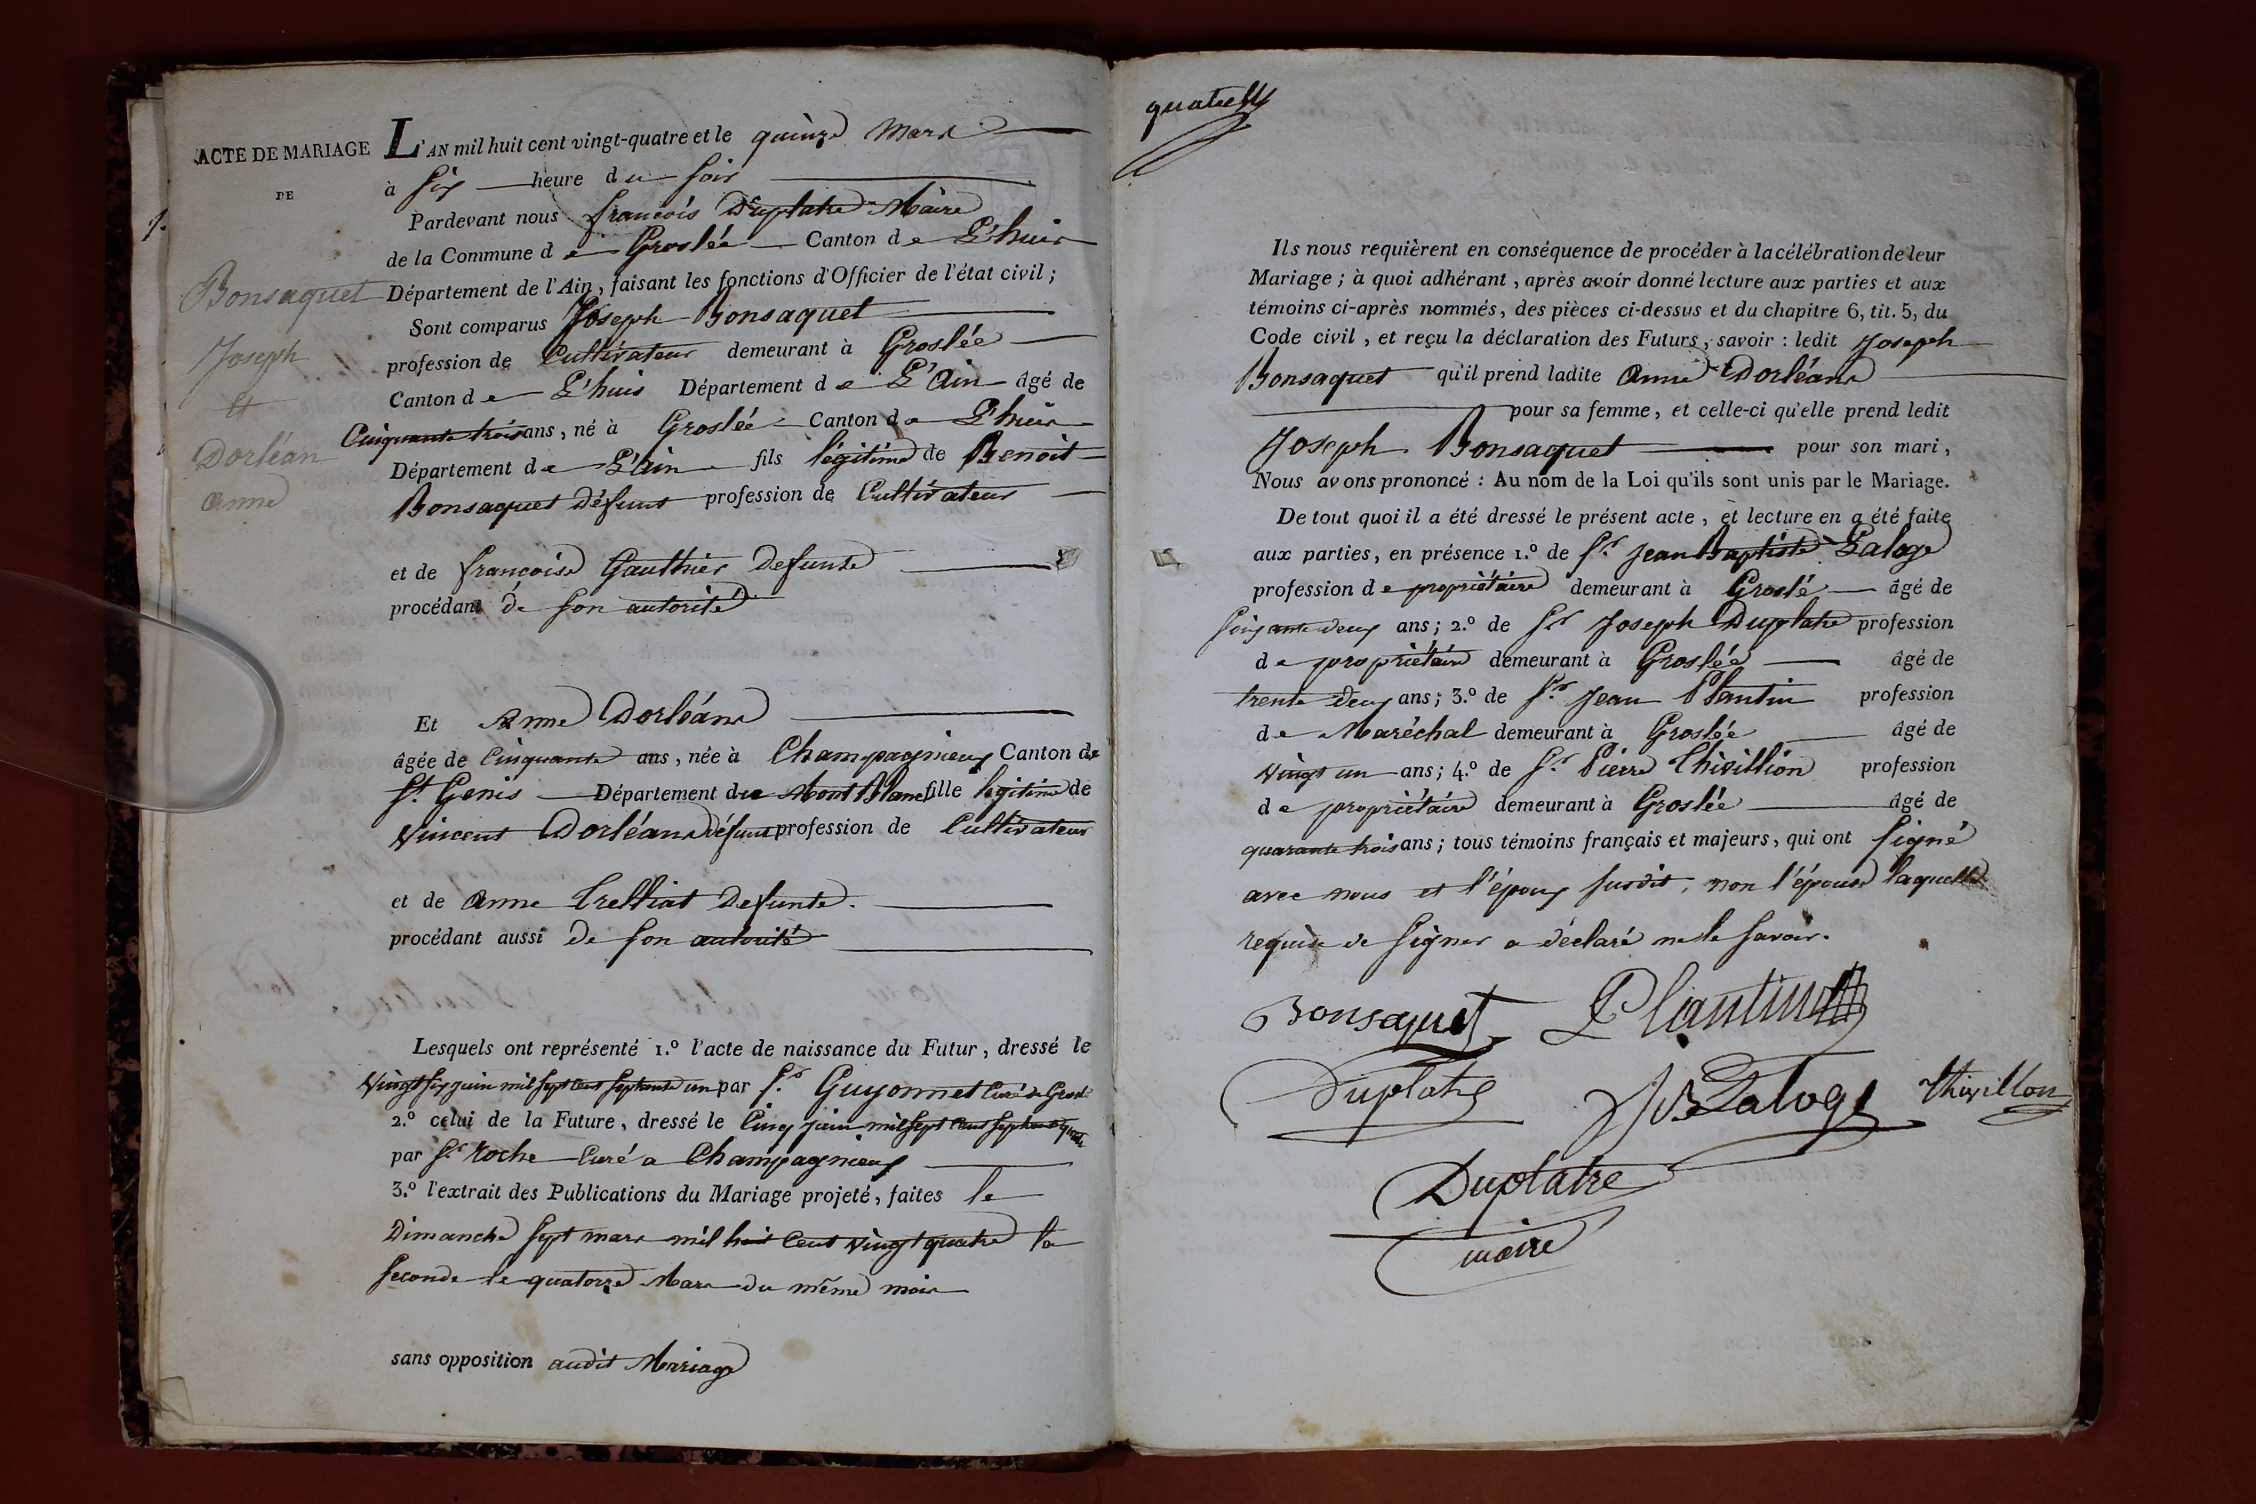 ACTE DE MARIAGE
DE
Bonsaquet
Joseph
et
Dorléan
anne
L'AN mil huit cent vingt-quatre et le quinze Mars
à six heure du soir
Pardevant nous françois Duplatre Maire
de la Commune de Groslée Canton de L'huis
Département de l'Ain, faisant les fonctions d'Officier de l'état civil ;
Sont comparus Joseph Bonsaquet
profession de Cultivateur demeurant à Groslée
Canton de L'huis Département de L'Ain âgé de
Cinquante trois ans, né à Groslée Canton de L'huis
Département de L'ain fils légitime de Benoit
Bonsaquet défunt profession de Cultivateur
et de françoise Gauthier defunte
procédant de son autorité
Et Anne Dorléans
âgée de Cinquante ans, née à Champagnieux Canton de
St Genis Département du Mont Blanc fille légitime de
Vincent Dorléans défunt profession de Cultivateur
et de anne Trelliat defunte.
procédant aussi de son autorité
Lesquels ont représenté 1.º l'acte de naissance du Futur, dressé le
Vingt six juin mil sept cent septante un par Sr Guyonnet Curé de Groslé
2.º celui de la Future, dressé le Cinq juin mil sept cent septante quatre
par Sr Roche Curé a Champagnieux
3.º l'extrait des Publications du Mariage projeté, faites le
Dimanche sept mars mil huit Cent vingt quatre la
seconde le quatorze Mars du même mois
sans opposition audit Mariage
Ils nous requièrent en conséquence de procéder à la célébration de leur
Mariage ; à quoi adhérant, après avoir donné lecture aux parties et aux
témoins ci-après nommés, des pièces ci-dessus et du chapitre 6, tit. 5, du
Code civil, et reçu la déclaration des Futurs, savoir : ledit Joseph
Bonsaquet qu'il prend ladite anne Dorléans
pour sa femme, et celle-ci qu'elle prend ledit
Joseph Bonsaquet pour son mari,
Nous avons prononcé : Au nom de la Loi qu'ils sont unis par le Mariage.
De tout quoi il a été dressé le présent acte, et lecture en a été faite
aux parties, en présence 1.º de Sr Jean Baptiste Laloge
profession de propriétaire demeurant à Groslé âgé de
soixante deux ans ; 2.º de Sr Joseph Duplatre profession
de propriétaire demeurant à Groslée âgé de
trente deux ans ; 3.º de Sr Jean Plantin profession
de Maréchal demeurant à Groslée âgé de
vingt un ans ; 4.º de Sr Pierre Thivillion profession
de propriétaire demeurant à Groslée âgé de
quarante trois ans ; tous témoins français et majeurs, qui ont signé
avec nous et l'époux susdit, non l'épouse laquelle
requise de signer a déclaré ne le savoir.
Bonsaquet Plantin
Duplatre JB Laloge Thivillon
Duplatre
maire